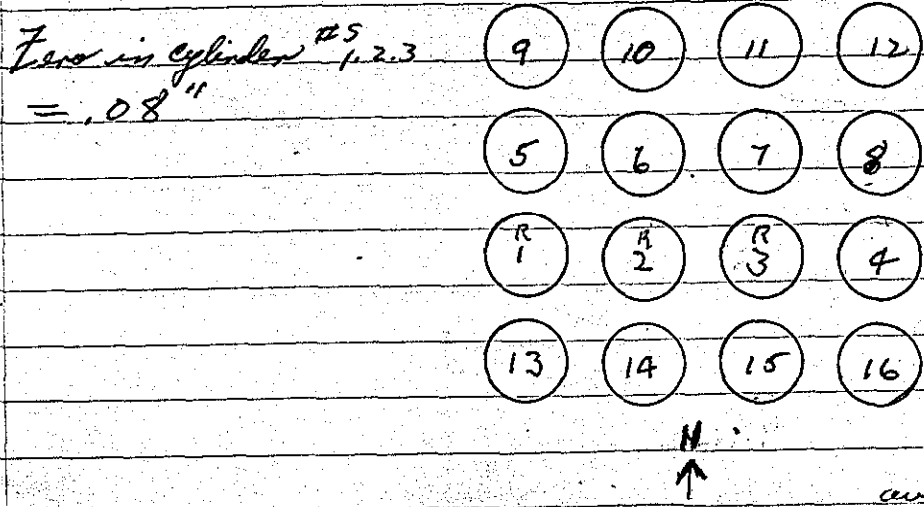 Zero in cylinder #s 1,2,3
= .08"
9 10 11 12
5 6 7 8
R 1 R 2 R 3 4
13 14 15 16
N